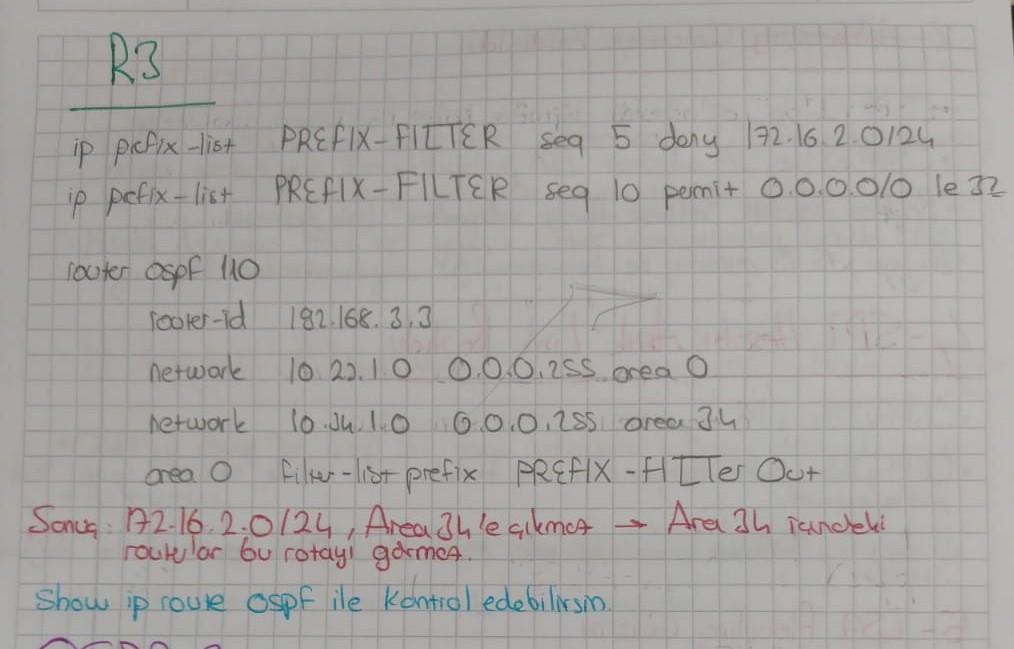 R3
ip prefix-list PREFIX-FILTER seq 5 deny 172.16.2.0/24
ip prefix-list PREFIX-FILTER seq 10 permit 0.0.0.0/0 le 32
router ospf 110
router-id 192.168.3.3
network 10.23.1.0 0.0.0.255 area 0
network 10.34.1.0 0.0.0.255 area 34
area 0 filter-list prefix PREFIX-FILTER Out
Sonuç: 172.16.2.0/24, Area 34'e çıkmaz → Area 34 içindeki
routerlar bu rotayı görmez.
Show ip route ospf ile kontrol edebilirsin.